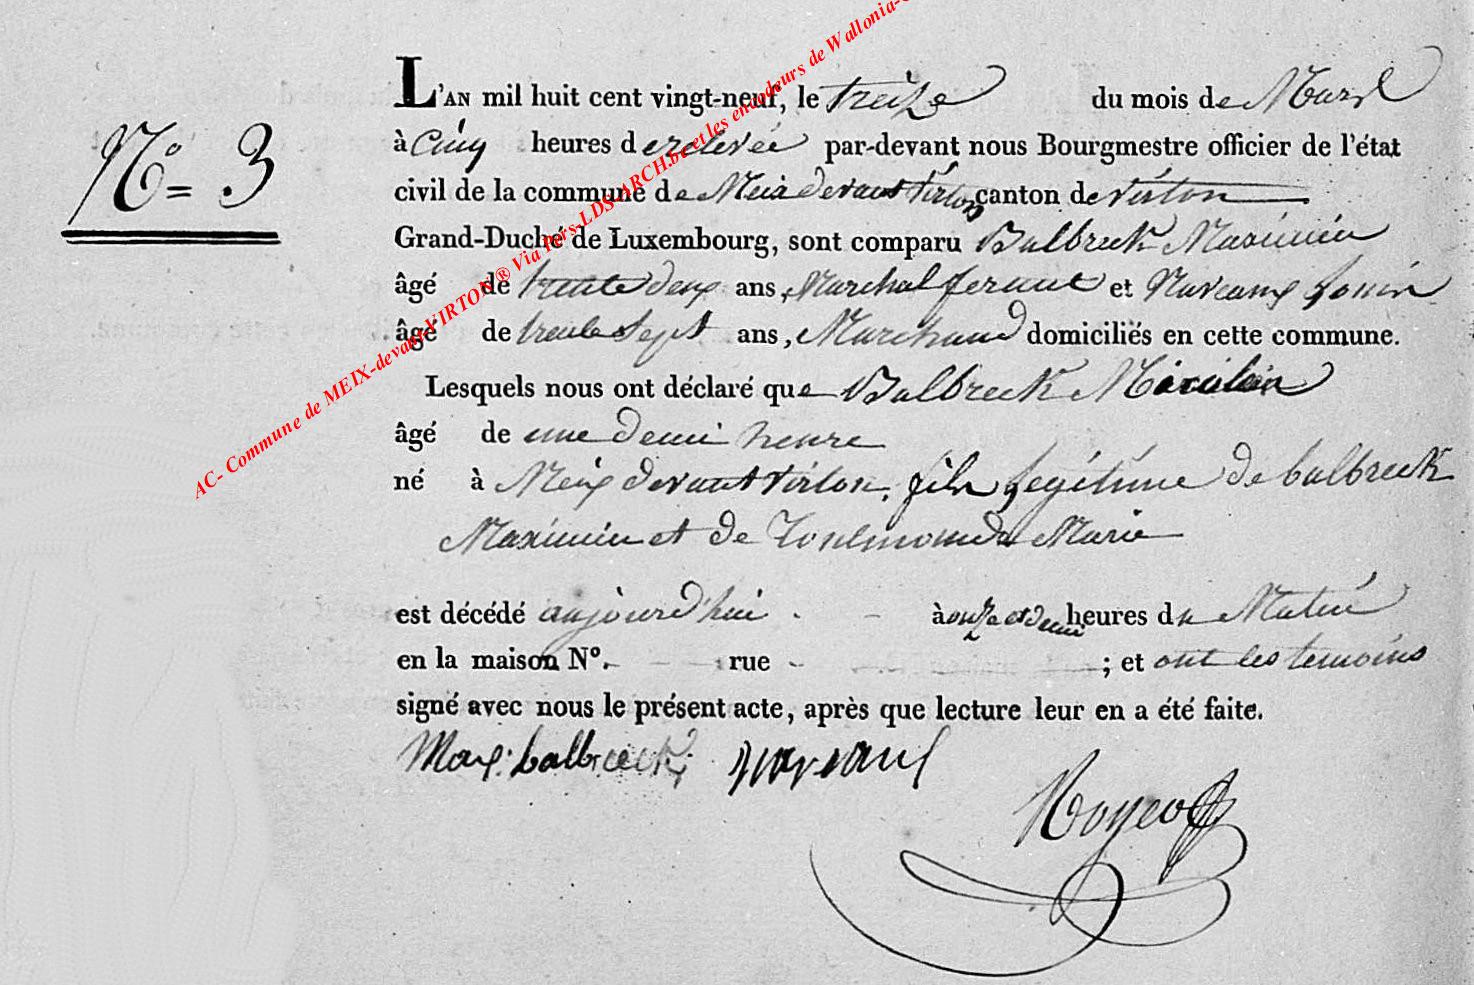 N° = 3
L'AN mil huit cent vingt-neuf, le treize du mois de Mars
à Cinq heures de relevée par-devant nous Bourgmestre officier de l'état
civil de la commune de Meix devant Virton canton de virton
Grand-Duché de Luxembourg, sont comparu Balbreck Maximin
âgé de trente deux ans, Marchal ferant et Naveaux
âgé de trente sept ans, Marchand domiciliés en cette commune.
Lesquels nous ont déclaré que Balbreck
âgé de une demi heure
né à Meix devant virton, fils legitime de balbreck
Maximin et de Toulmonde Marie
est décédé aujourd'hui à onze et demi heures du Matin
en la maison N°. rue ; et ont les temoins
signé avec nous le présent acte, après que lecture leur en a été faite.
Max: balbreck
AC- Commune de MEIX-devant-VIRTON ® Via Pers-LDS-ARCH.be et les encodeurs de Wallonia-